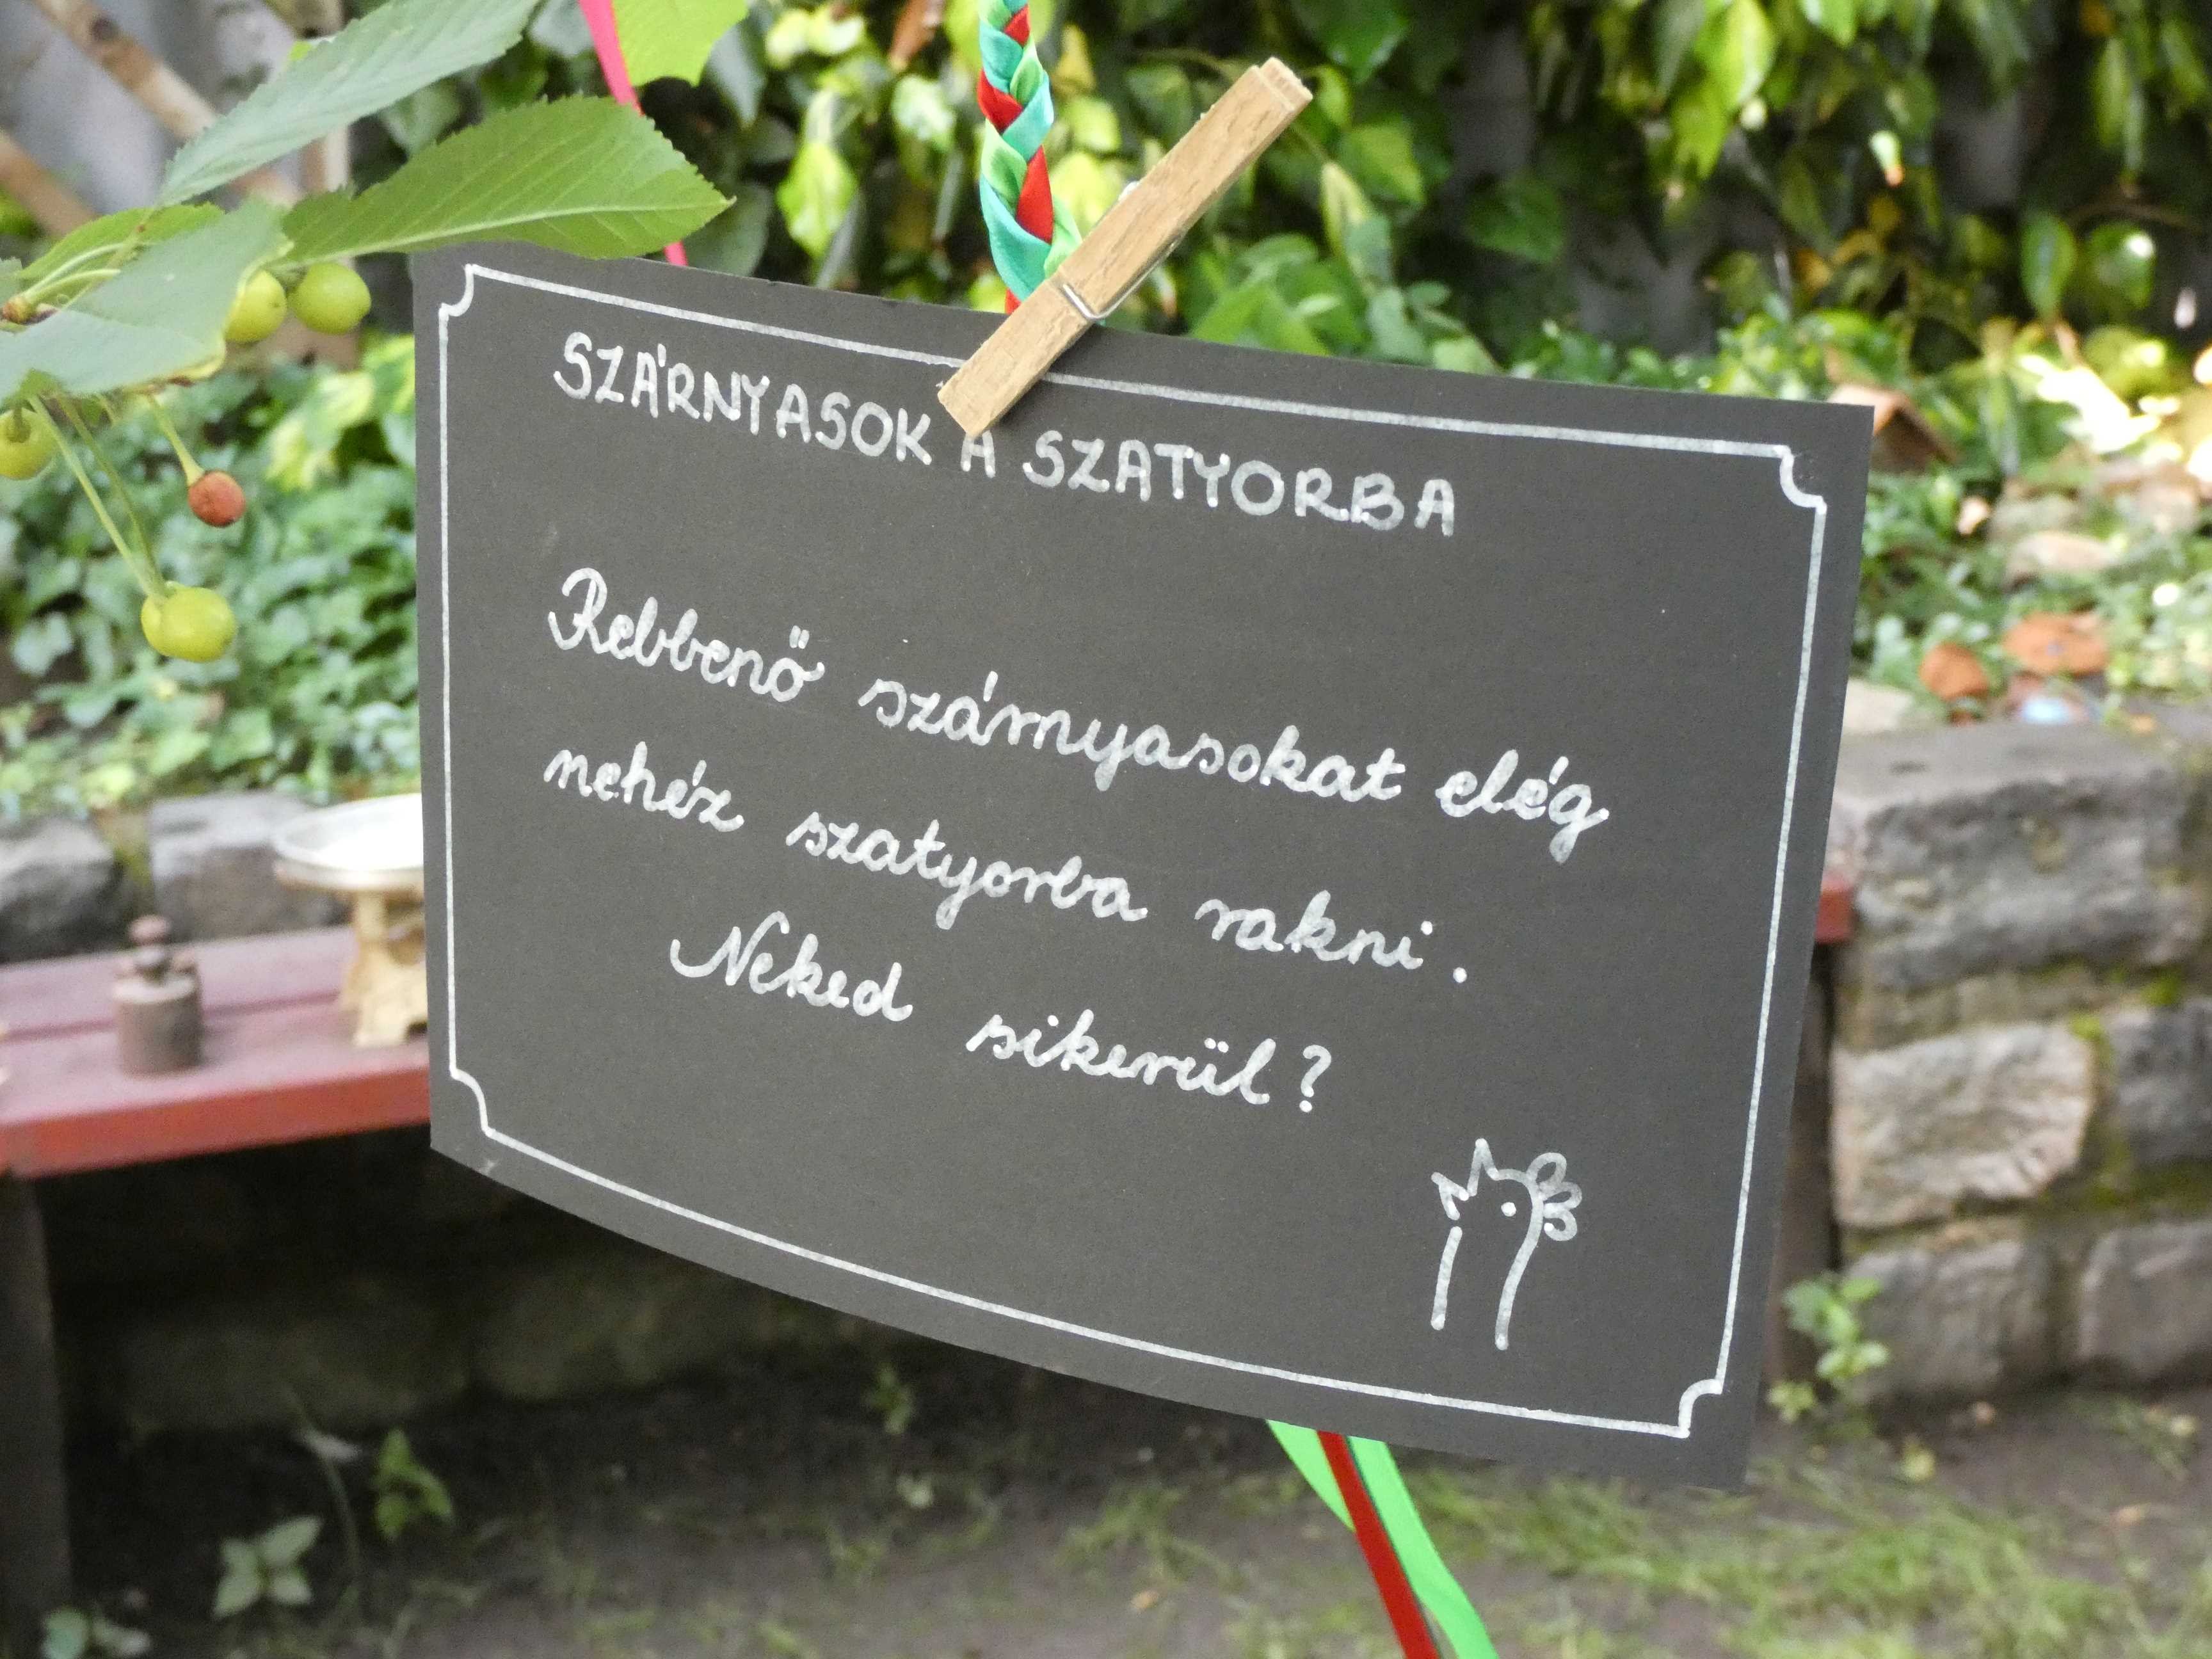 SZÁRNYASOK A SZATYORBA
Rebbenő szárnyasokat elég
nehéz szatyorba rakni.
Neked sikerül?